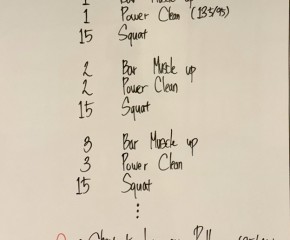 1 Bar Muscle up
1 Power Clean (135/95)
15 Squat
2 Bar Muscle up
2 Power Clean
15 Squat
3 Bar Muscle up
3 Power Clean
15 Squat
⋮